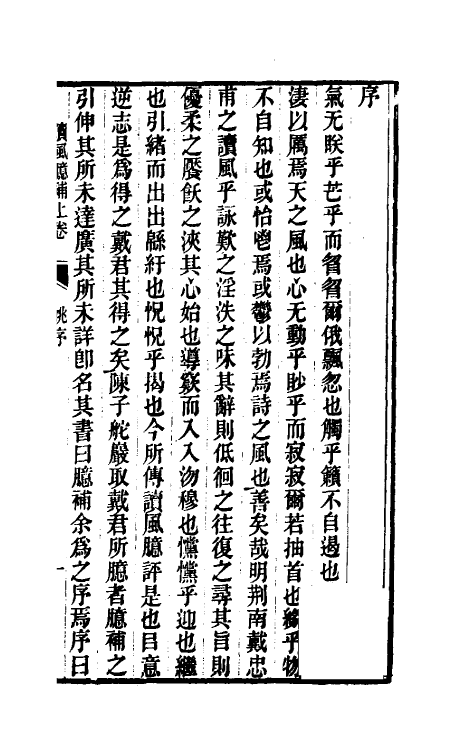 序
氣无朕乎芒乎而曶曶爾俄飄忽也觸乎籟不自遏也
淒以厲焉天之風也心无動乎眇乎而寂寂爾若抽首也緣乎物
不自知也或怡噫焉或鬱以勃焉詩之風也善矣哉明荆南戴忠
甫之讀風乎詠歎之淫泆之味其辭則低徊之往復之尋其旨則
優柔之饜飫之浹其心始也導窾而入入沕穆也戃戃乎迎也繼
也引緒而出出緜紆也怳怳乎揭也今所傳讀風臆評是也目意
逆志是爲得之戴君其得之矣陳子舵巖取戴君所臆者臆補之
引伸其所未達廣其所未詳卽名其書曰臆補余爲之序焉序曰
讀風臆補上卷
姚序
一